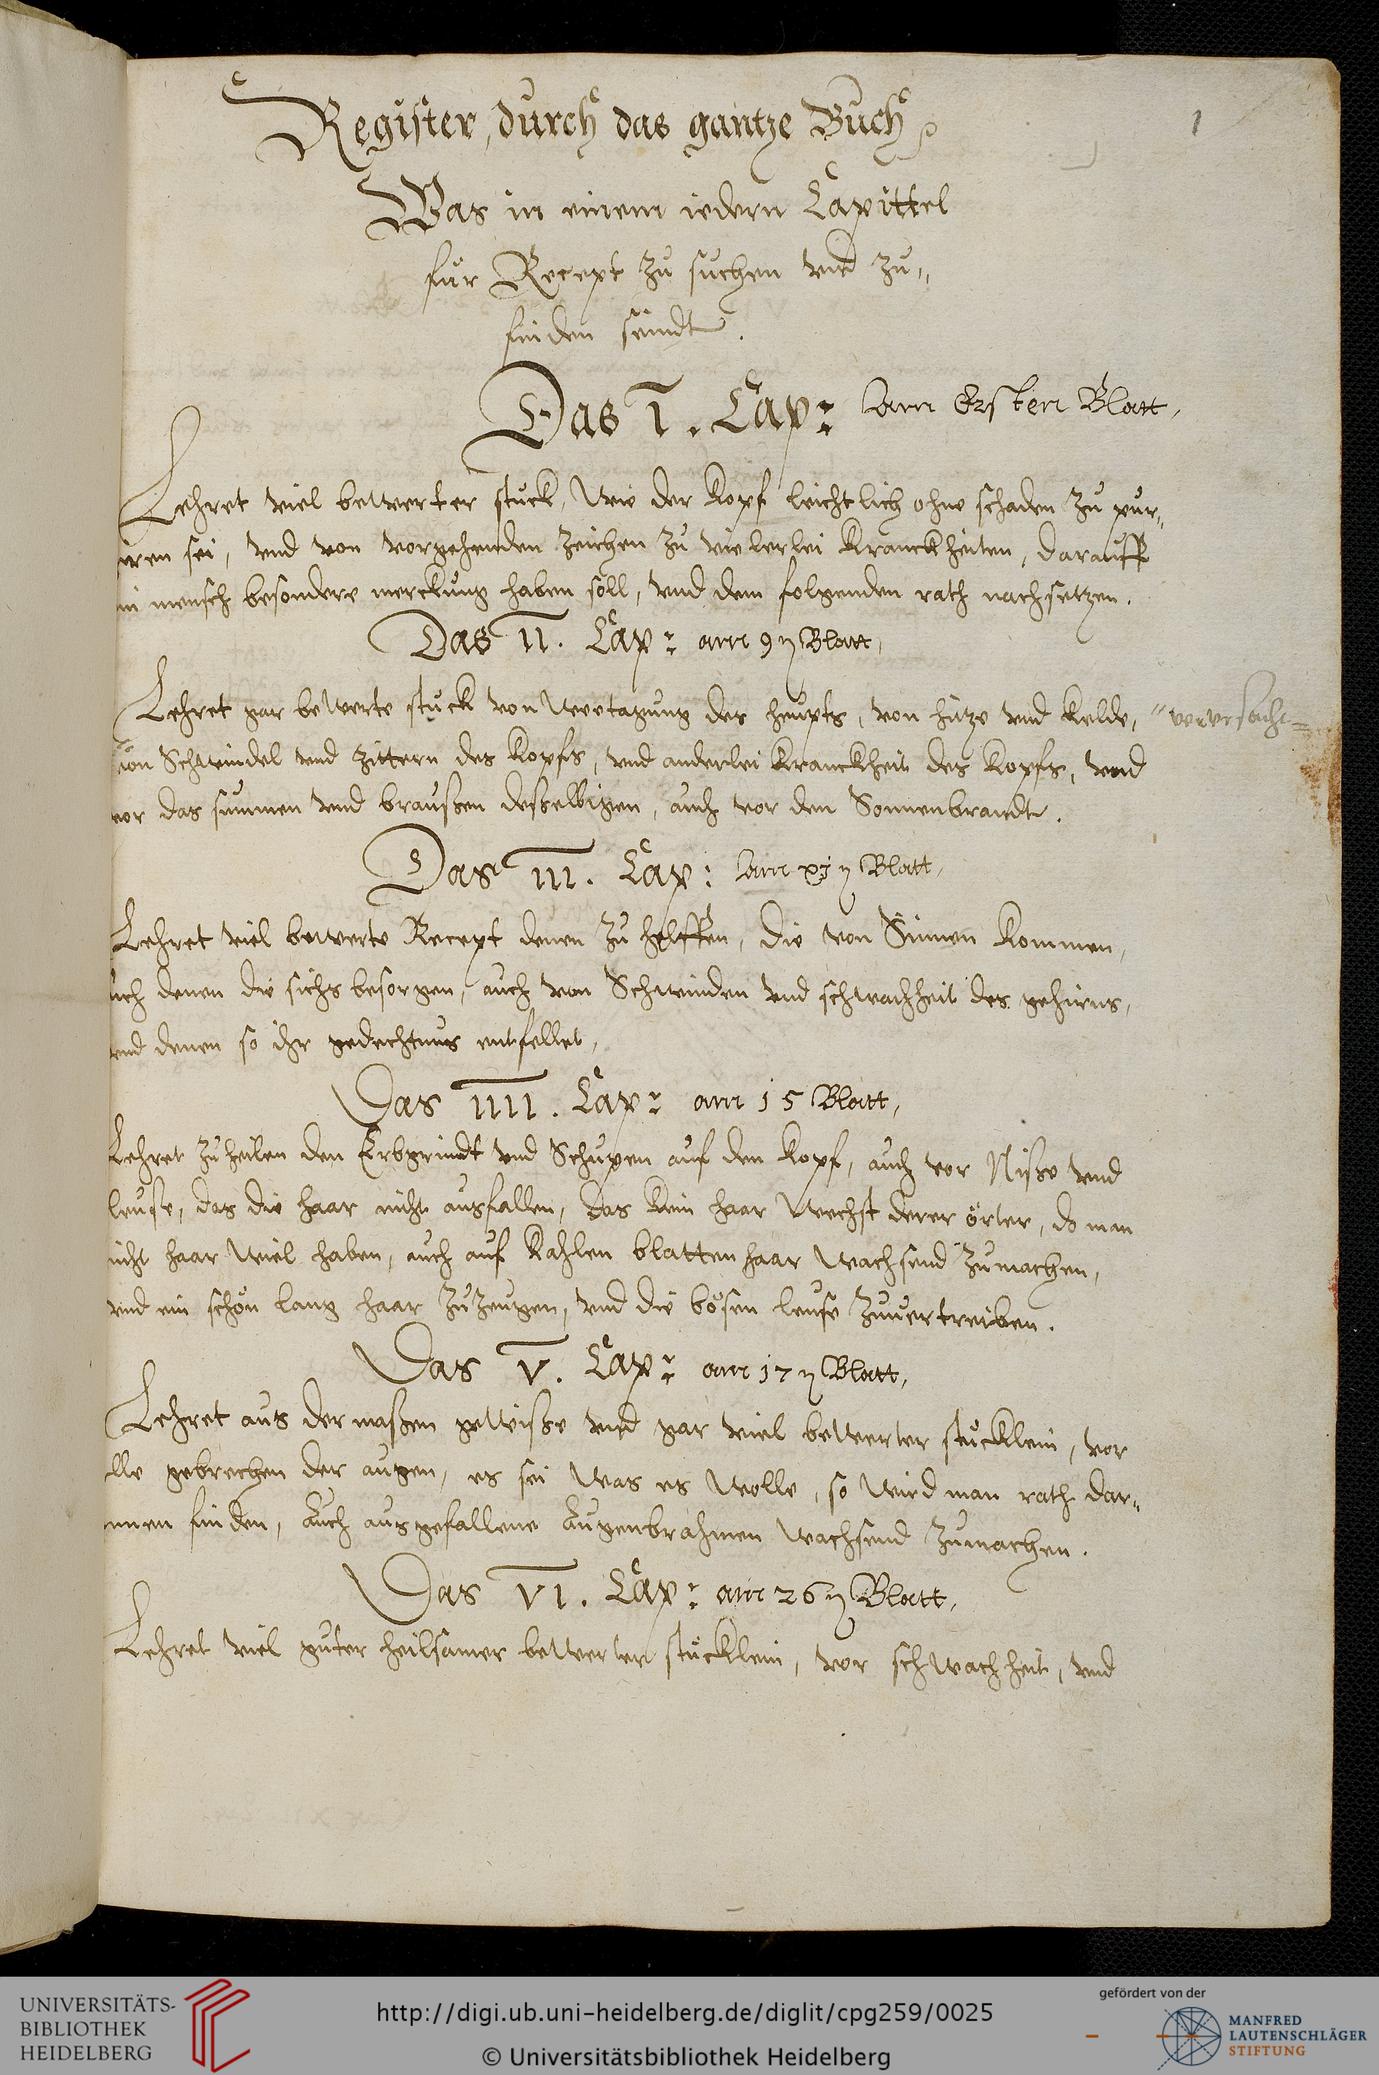 Register, durch das gantze Buch
1
Was in einem iedern Capittel
für Recept zu suchen vnd zu„
finden seindt.
Das I. Cap: am Ersten Blatt,
Lehret viel bewerter stück, wie der Kopf leichtlich ohne schaden zu pur„
iren sei, vnd von vorgehenden zeichen zu vielerlei Kranckheiten, darauff
in mensch besondere merckung haben soll, vnd dem folgenden rath nachsetzen.
Das II. Cap: am 9 Blatt,
Lehret gar bewerte stück von wetagung des heupts, von hitze vnd kelde, " verursacht
von Schwindel vnd zittern des Kopfs, vnd anderlei kranckheit des Kopfs, vnd
vor das summen vnd braußen deßelbigen, auch vor den Sonnenbrandt.
Das III. Cap: am xj Blatt,
Lehret viel bewerte Recept denen zu helffen, die von Sinnen kommen,
uch denen die sichs besorgen, auch von Schwinden vnd schwachheit des gehirns,
vnd denen so ihr gedechtnus entfellet,
Das IIII. Cap: am 15 Blatt,
Lehret zu heilen den Erbgrindt vnd Schupen auf den Kopf, auch vor Niße vnd
leuse, das die haar nicht ausfallen, das kein haar wechst derer örter, do man
nicht haar wiel haben, auch auf kahlen blatten haar wachsend zumachen,
vnd ein schön lang haar zuzeugen, vnd die bösen leuse zuuertreiben.
Das V. Cap: am 17 Blatt,
Lehret aus dermaßen gewisse vnd gar viel bewerter stücklein, vor
lle gebrechen der augen, es sei was es wolle, so wird man rath dar„
innen finden, Auch ausgefallene Augenbrahmen wachsend zumachen.
Das VI. Cap: am 26 Blatt,
Lehret viel guter heilsamer bewerter stücklein, vor schwachheit, vnd
UNIVERSITÄTS-
BIBLIOTHEK
HEIDELBERG
http://digi.ub.uni-heidelberg.de/diglit/cpg259/0025
© Universitätsbibliothek Heidelberg
gefördert von der
MANFRED
LAUTENSCHLÄGER
STIFTUNG